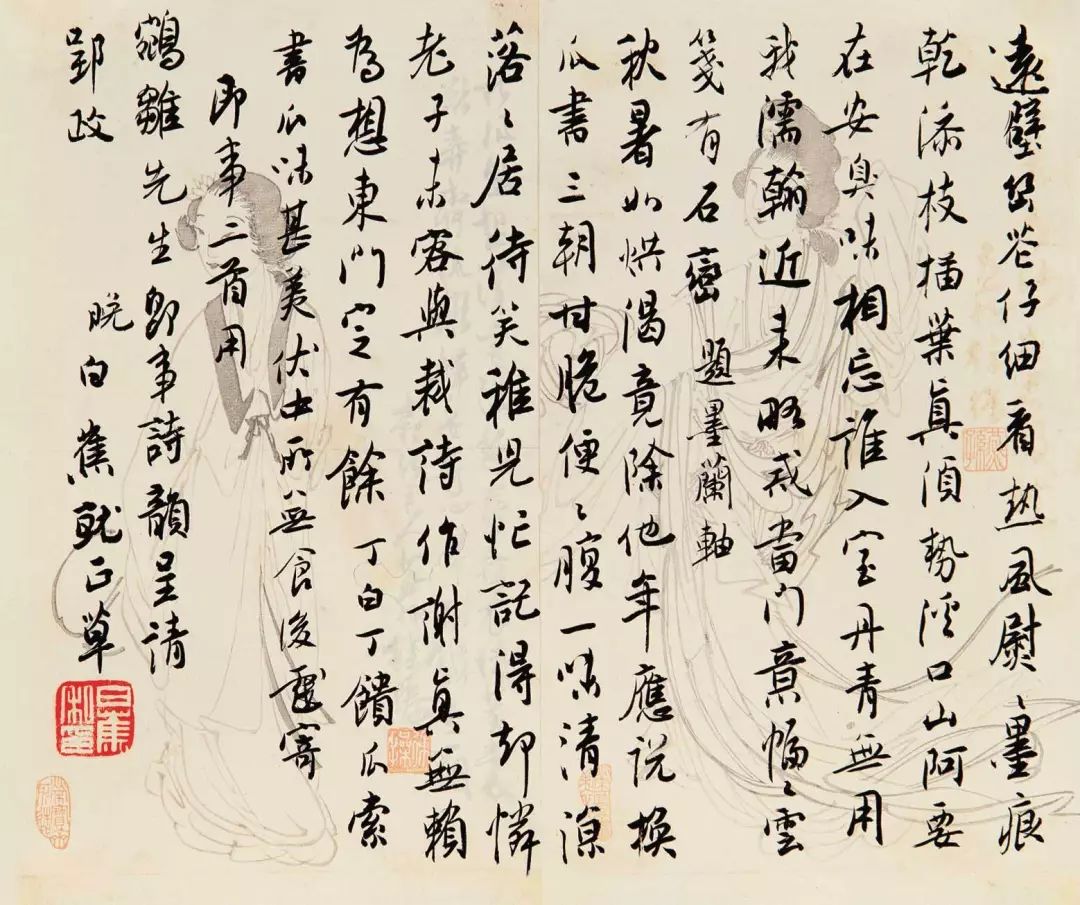 遠壁花仔細看熱風熨〻墨痕
乾添枝插葉真須勢溪口山阿要
在安臭味相忘誰入室丹青無用
我濡翰近来略戒當門意幅〻雲
箋有石巒 題墨蘭軸
秋暑如烘渴竟除他年應說換
瓜書三朝甘脆便〻腹一味清涼
落〻居待笑稚児忙記得却憐
老子未容與裁詩作謝真無賴
為想東門定有餘 丁白丁饋瓜索
書瓜味甚美伏中所無食後戲寄
即事二首用
鵷雛先生即事詩韻呈請
郢政
晚白蕉就正草
白蕉私印